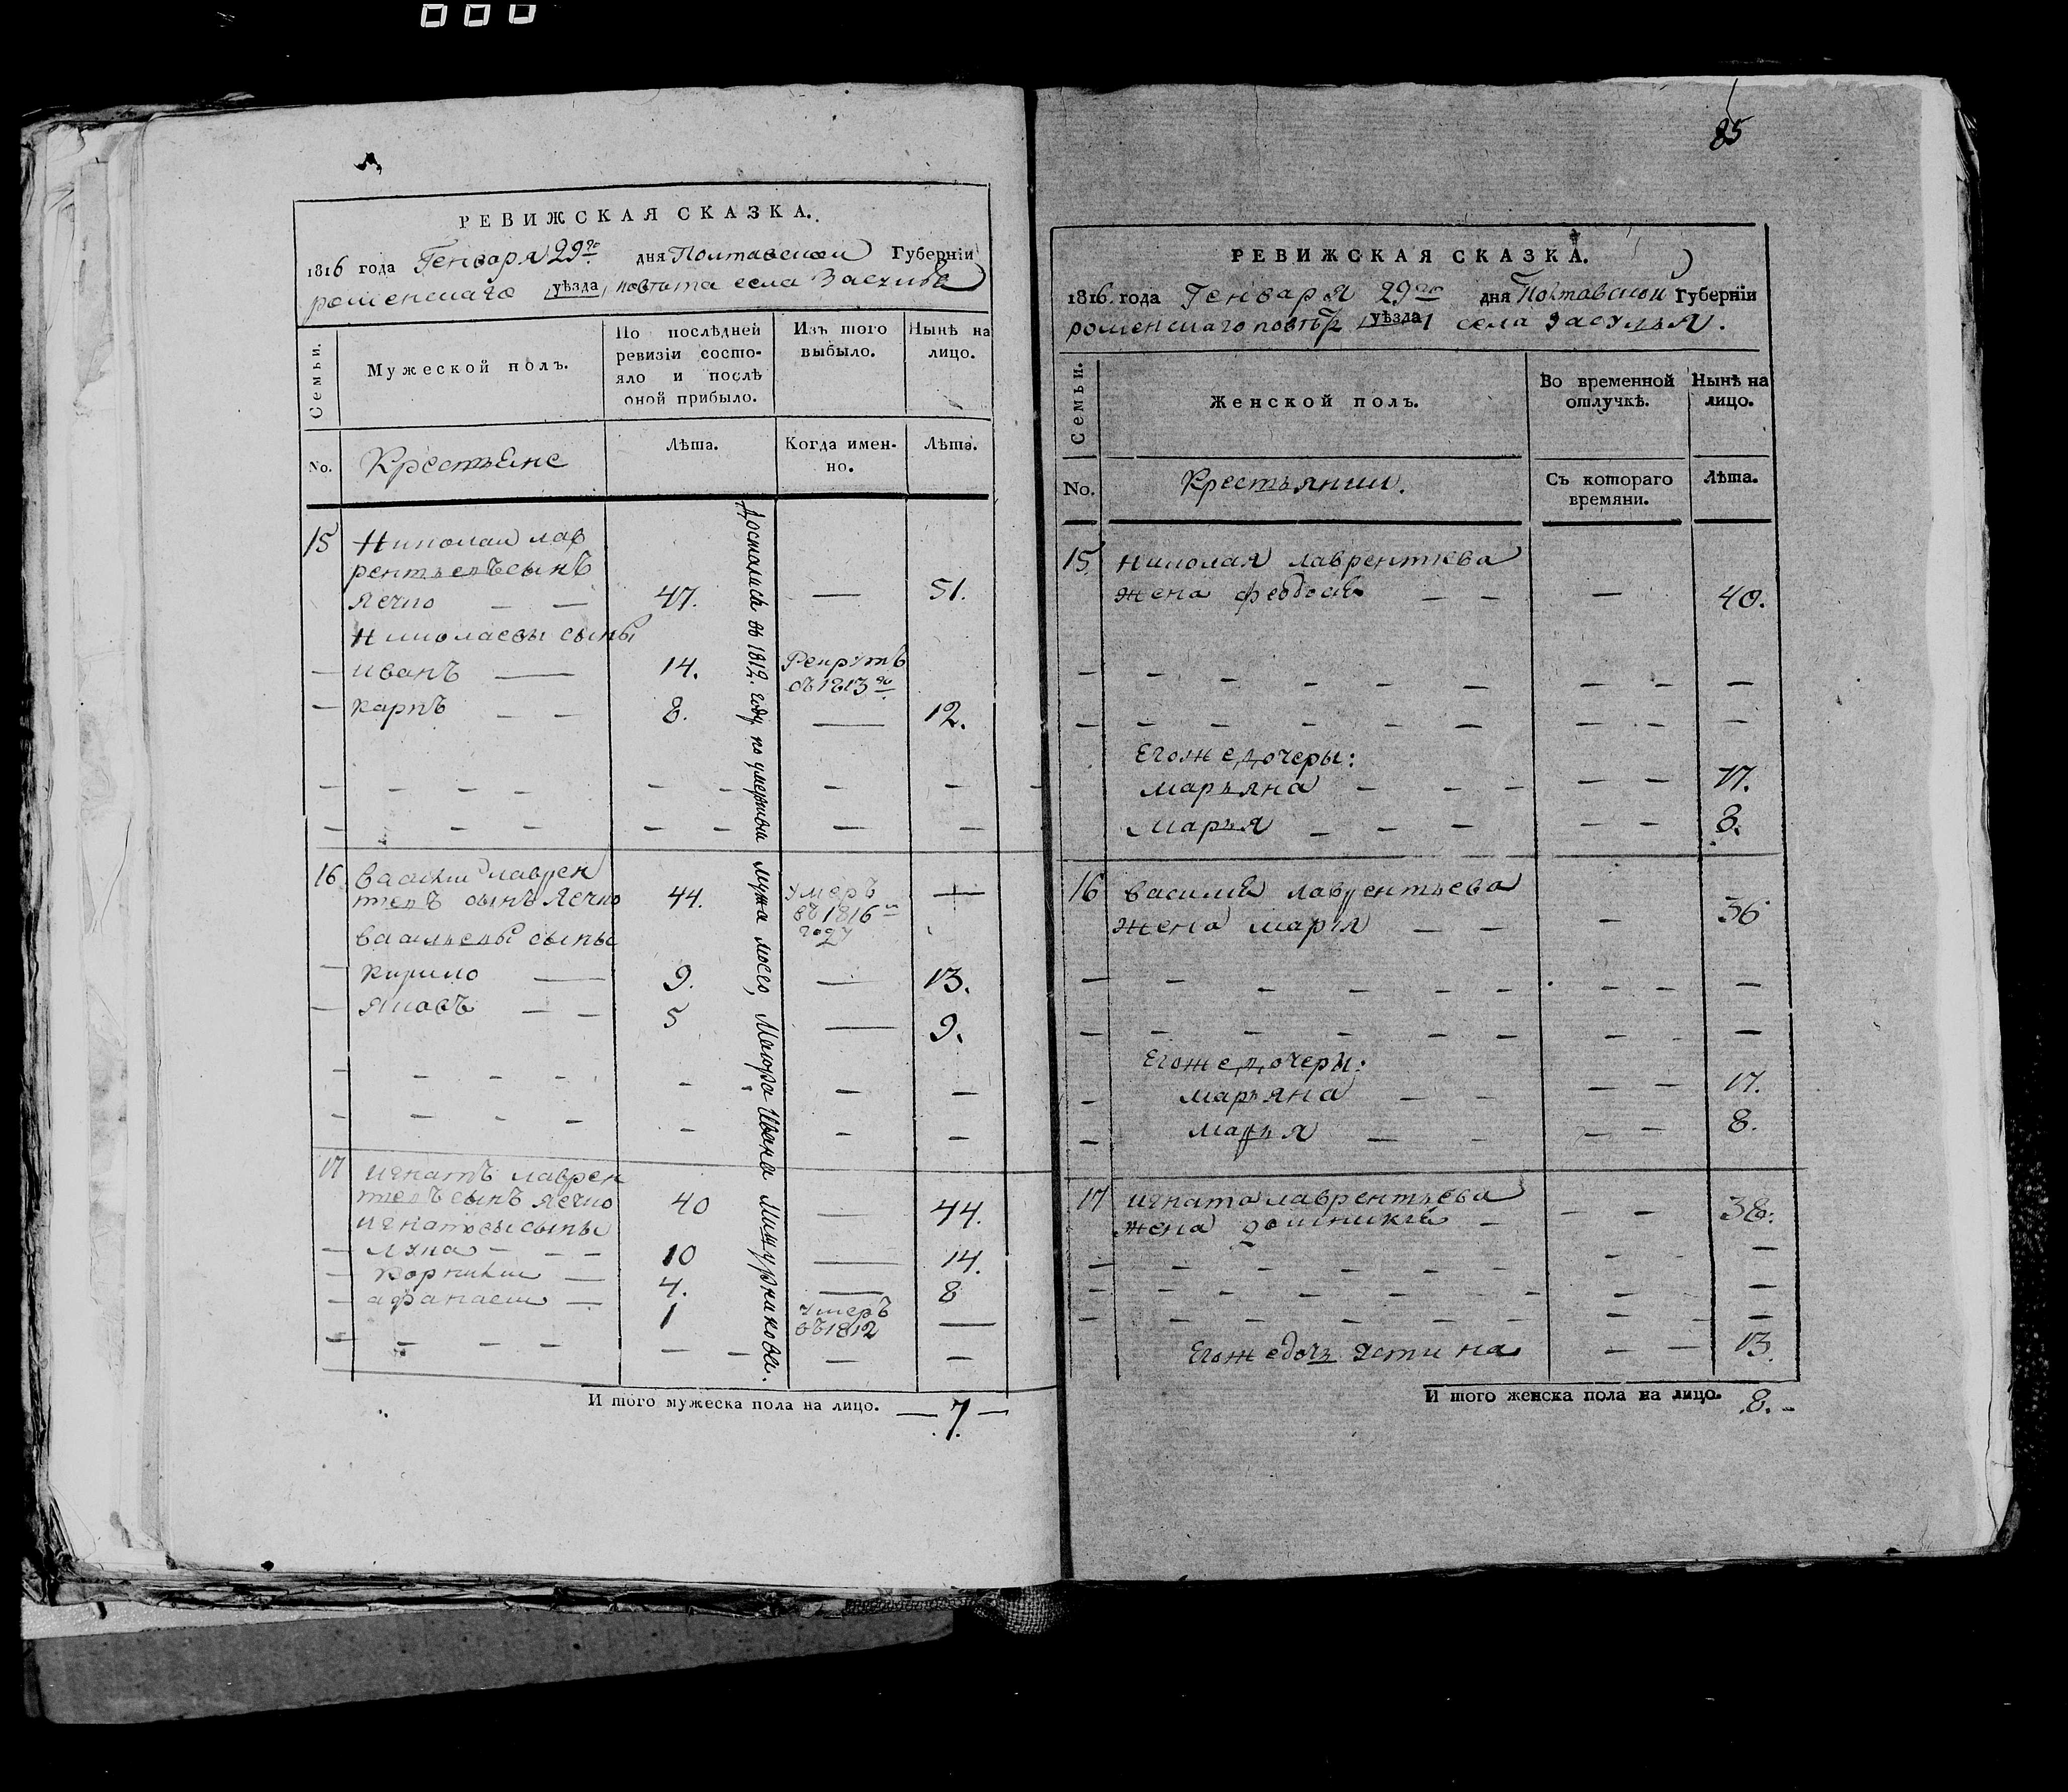 РЕВИЖСКАЯ СКАЗКА.
1816 года Генваря 29го дня Полтавской Губернїи
роменскаго уѣзда повѣта села Засулья
Семьи.
Мужеской полъ.
По послѣдней ревизїи состояло и послѣ оной прибыло.
Изъ того выбыло.
Нынѣ на лицо.
No.
Крестьяне
Лѣта.
Когда именно.
Лѣта.
15 Николай лав
рентьевъ сынъ
Ячно — — 47. — 51.
Николаевы сыны
— иванъ — 14. Рекрутъ
въ 1813го
— карпъ — — 8. — 12.
16 василий лаврен
тевъ сынъ Ячно 44. умеръ —
въ 1816м
году
васильевы сыны
— кирило — 9. — 13.
— яковъ — — 5 — 9.
17 игнатъ лаврен
тевъ сынъ Ячно 40 — 44.
игнатовы сыны
— лука — — — 10 — 14.
— корнилий — 4. — 8
— афанасий — 1 умеръ —
въ 1812
Достались въ 1812. году по умершем мужа моего, Маиора Ивана Мищурнакова.
И того мужеска пола на лицо. — 7. —
85
РЕВИЖСКАЯ СКАЗКА.
1816. года Генваря 29го дня Полтавской Губернїи
роменскаго повѣта уѣзда села засулья.
Семьи.
Женской полъ.
Во временной отлучкѣ.
Нынѣ на лицо.
No.
Крестьянки.
Съ котораго времяни.
Лѣта.
15. николая лаврентиева
жена феодосия — — — 40.
Егоже дочеры:
марьяна — — — — — 17.
марья — — — — — 8.
16 василия лаврентьева
жена мария — — — 36
Егоже дочеры:
— марьяна — — — — 17.
— марья — — — — 8.
17 игната лаврентьева
жена домникия — — — 38.
Егоже дочь устина — — 13.
И того женска пола на лицо. 8. —